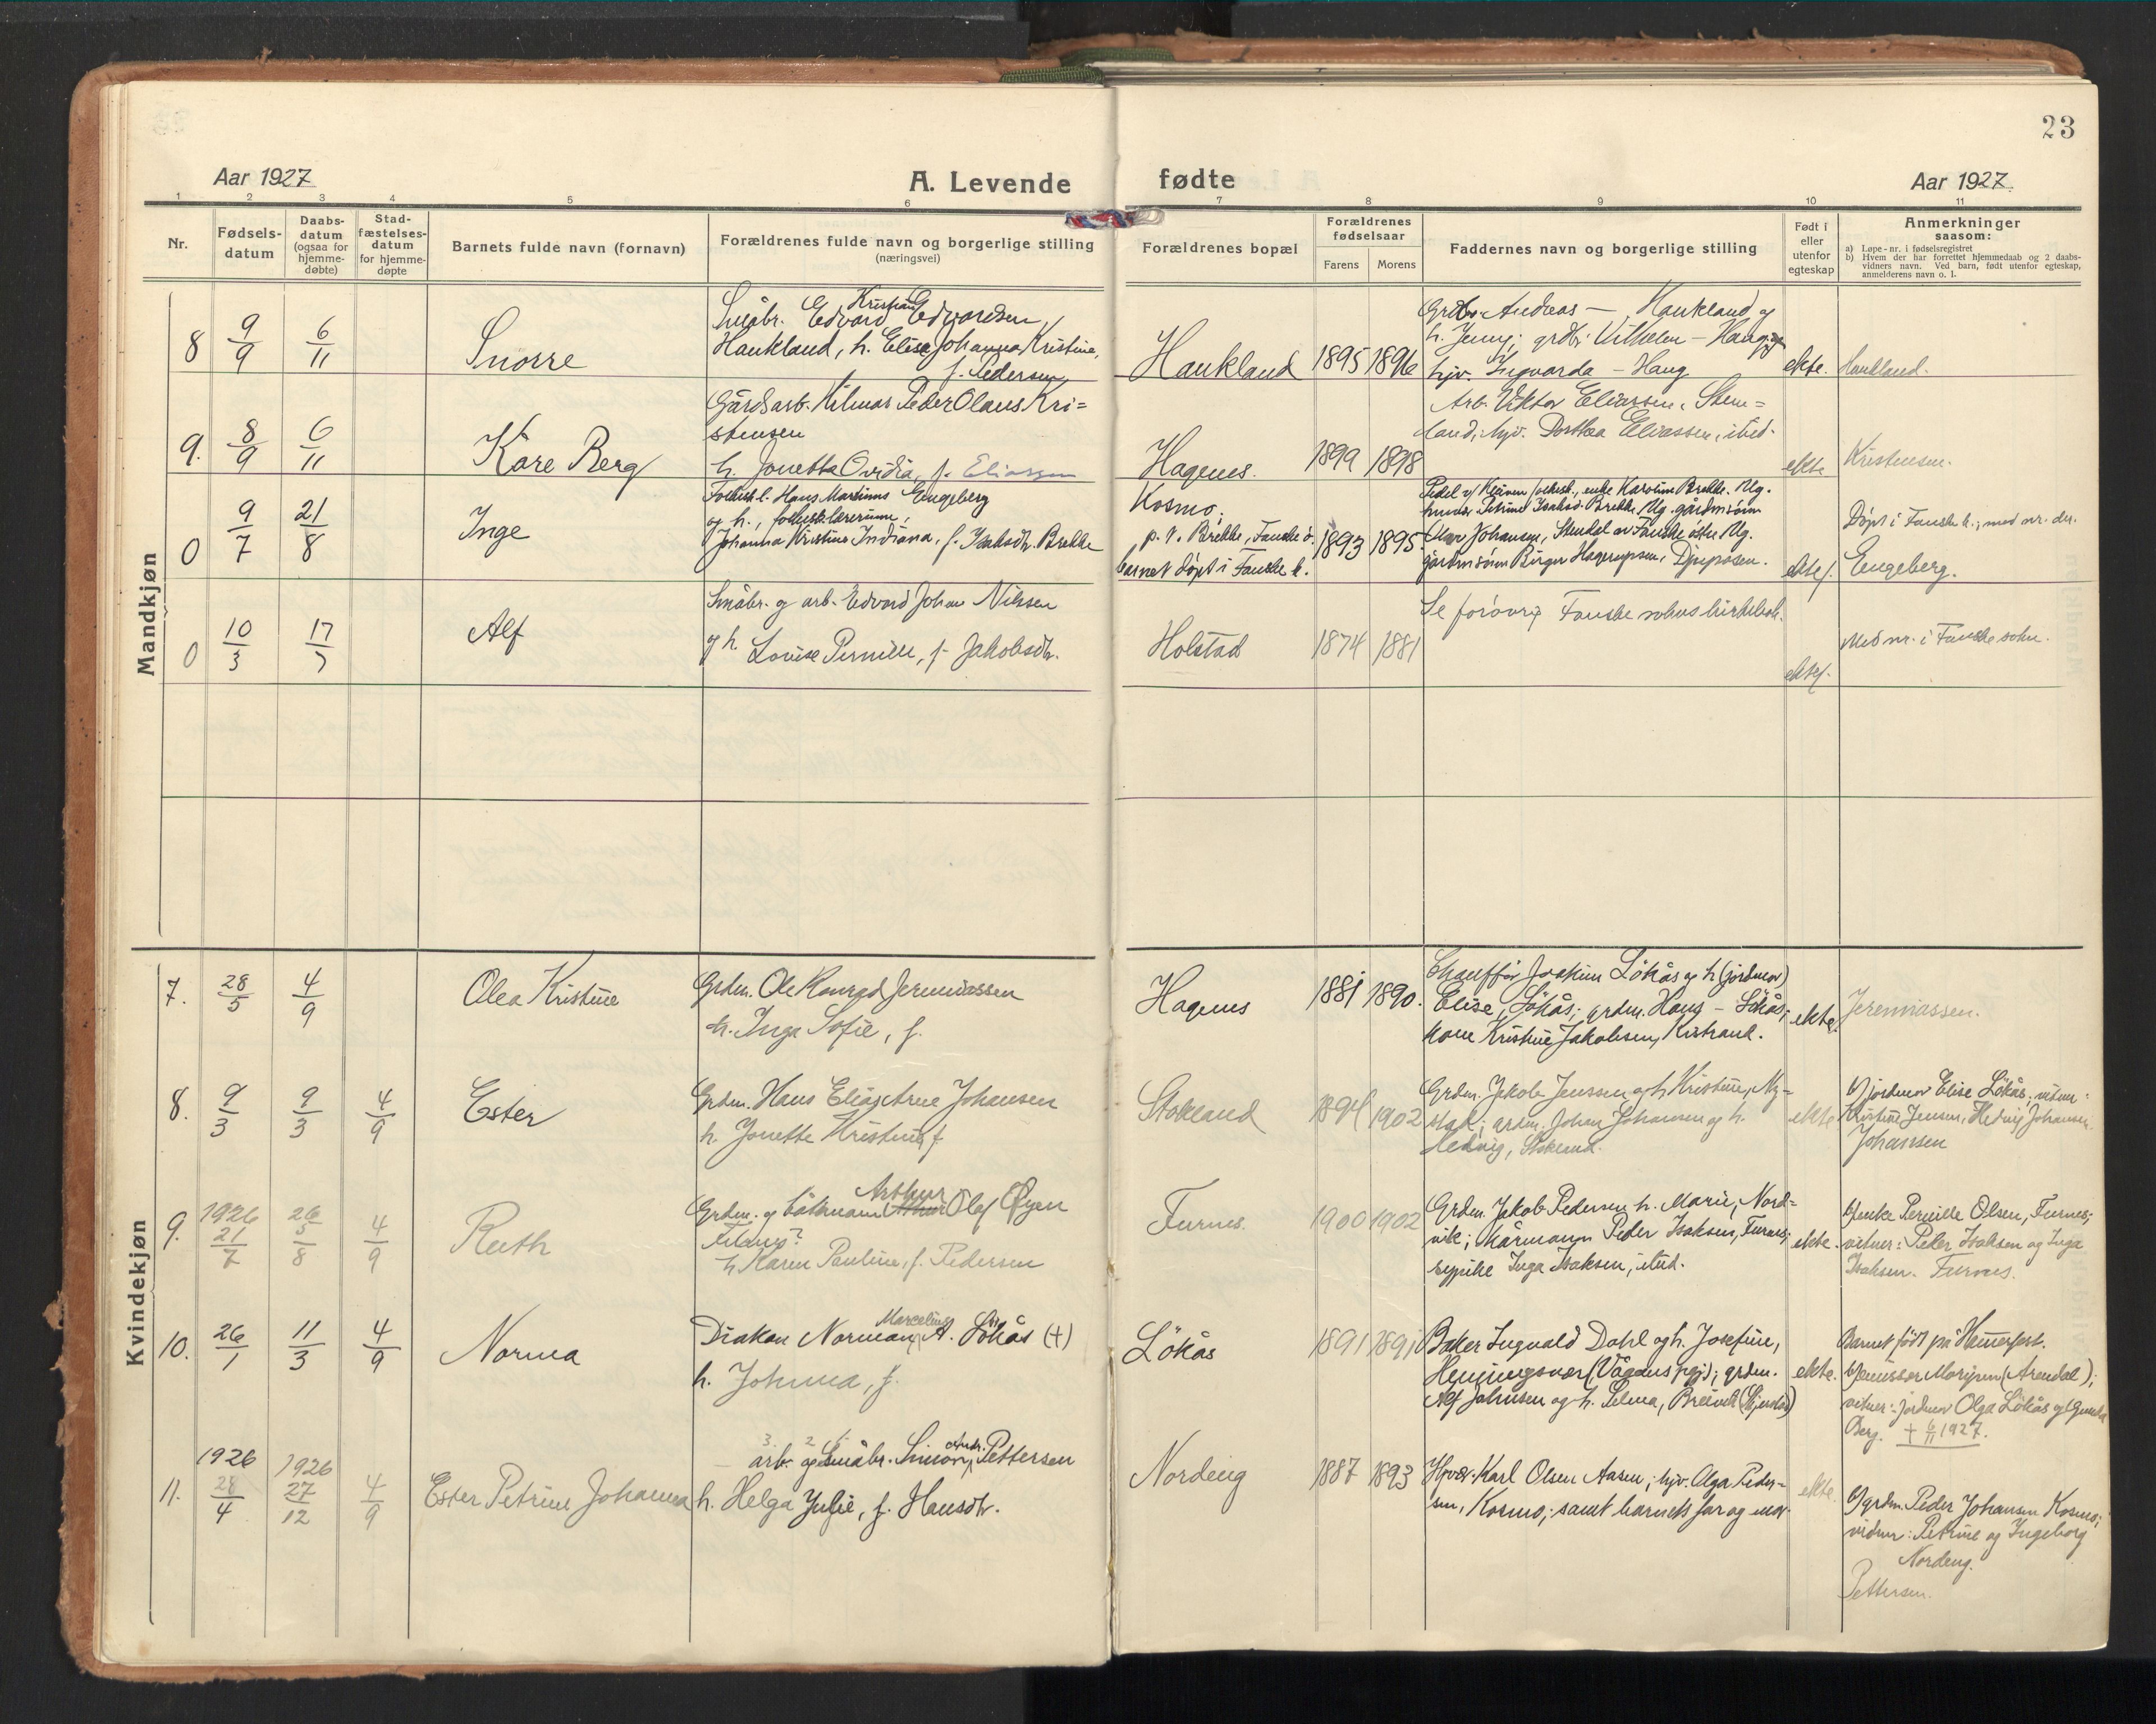 23
Aar 1927
A. Levende
fødte
Aar 1927.
1 2 3 4 5 6 7 8 9 10 11
Nr.
Fødsels-
datum
Daabs-
datum
(ogsaa for
hjemme-
døbte)
Stad-
fæstelses-
datum
for hjemme-
døpte
Barnets fulde navn (fornavn)
Forældrenes fulde navn og borgerlige stilling
(næringsvei)
Forældrenes bopæl
Forældrenes
fødselsaar
Farens Morens
Faddernes navn og borgerlige stilling
Født i
eller
utenfor
egteskap
Anmerkninger
saasom:
a) Løpe-nr. i fødselsregistret
b) Hvem der har forrettet hjemmedaab og 2 daabs-
vidners navn. Ved barn, født utenfor egteskap,
anmelderens navn o. l.
Mandkjøn
8 9/9 6/11
Snorre
Småbr. Edvard Kristian Edvardsen
Haukland, h. Elise Johanna Kristine,
f. Pedersen
Haukland
1895 1896
Grdbr. Andreas — Haukland og
h. Jenny; grdbr. Vilhelm — Haug og
hjv. Ingvarda — Haug
ekte.
Haukland.
9. 8/9 6/11
Kåre Berg
Gårdsarb. Hilmar Peder Olaus Kri=
stensen
h. Jonetta Ovidia, f. Eliassen
Hagenes.
1899 1898
Arb. Viktor Eliassen,
land; hjv. Dorthea Eliassen, ibid.
ekte
Kristensen.
0 9/7 21/8
Inge
Folkesk.l. Hans Martinus Engeberg
og h., folkesk.lærerinne,
Johanna Kristine Indiana, f. Isaksdtr. Brekke
Kosmo.
p. t. Brekke, Fauske ø.
barnet døpt i Fauske k.
1893 1895
enke Karoline Brekke. Ug.
Petrine Isaksd. Brekke. Ug. gårdm.søim
Johansen, Stendal av Fauske østre Ug.
gårdm.søim Birger Hagerupsen, Djuposen.
ektef.
Døpt i Fauske k., med nr. der.
Engeberg.
0 10/3 17/7
Alf
Småbr. og arb. Edvard Johan Nilsen
og h. Lovise Pernille, f. Jakobsdtr.
Holstad
1874 1881
Se forøvrig Fauske sokns kirkebok.
ektef.
Med nr. i Fauske sokn.
Kvindekjøn
7. 28/5 4/9
Olea Kristine
Grdm. Ole Konrad Jeremiassen
h. Inga Sofie, f.
Hagenes
1881 1890.
Chauffør Joakim Løkås og h. (jordmor)
Elise, Løkås; grdm. Hans — Løkås;
kone Kristine Jakobsen, Kistrand.
ekte.
Jeremiassen.
8. 9/3 9/3 4/9
Ester
Grdm. Hans Elias Arne Johansen
h. Jonette Kristine f.
Stokland
1894 1902
Grdm. Jakob Jenssen og h. Kristine, Ny=
stad; grdm. Johan Johansen og h.
Hedvig, Stokland.
ekte
b) jordmor Elise Løkås; vidner:
Kristine Jensen, Hedvig Johansen.
Johansen
9. 1926 21/7 26/8 4/9
Ruth
Grdm. og båtmann Arthur Olaf Øyen
h. Karen Pauline, f. Pedersen
Furnes.
1900 1902
Grdm. Jakob Pedersen h. Marie, Nord=
vik; kårmann Peder Isaksen, Furnes;
sypike Inga Isaksen, ibid.
ekte.
b) enke Pernille Olsen, Furnes;
vitner: Peder Isaksen og Inga
Isaksen. Furnes.
10. 26/1 11/3 4/9
Norma
Diakon Norman Marcelius A. Løkås (+)
h. Johnna, f.
Løkås
1891 1891
Baker Ingvald Dahl og h. Josefine,
Henningsvær (Vågans prgj); grdm.
Alf Johnsen og h. Selma, Breivik (Skjerstad)
ekte.
Barnet født på Hammerfest.
b) emissær Morisen (Arendal);
vitner: jordmor Olga Løkås og Gunda
Berg. + 6/11 1927.
11. 1926 28/4 1926 27/12 4/9
Ester Petrine Johanna
3 2 1
arb. og småbr. Simon Andr. Pettersen
h. Helga Julie, f. Hansdtr.
Nordeng
1887 1893
Karl Olsen Aasen; hjv. Olga Peder=
sen, Kosmo; samt barnets far og mor.
ekte.
b) grdm. Peder Johansen Kosmo;
vidner: Petrine og Ingeborg
Nordeng.
Pettersen.